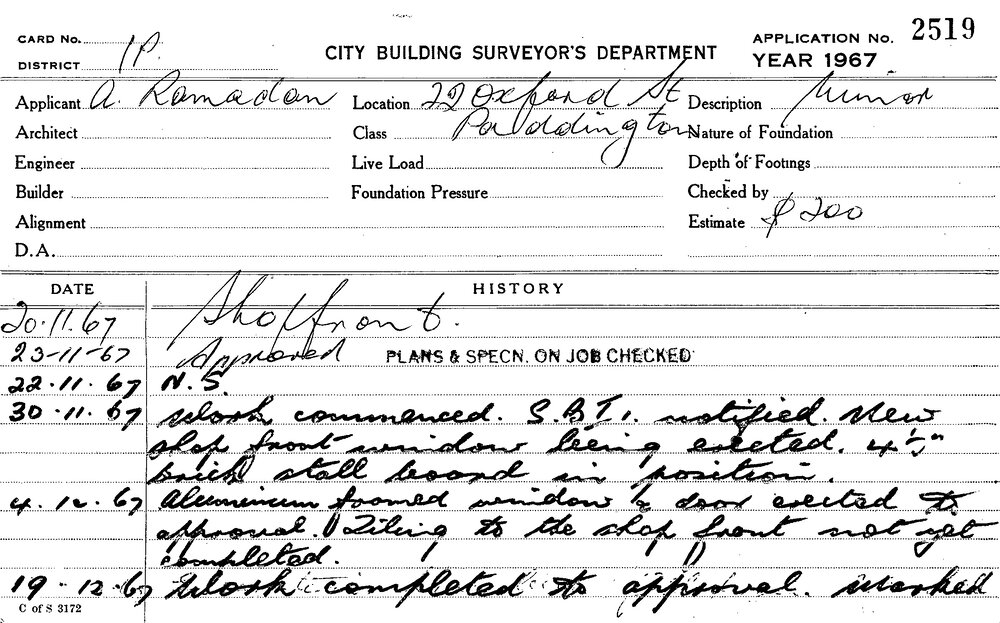 CARD No. 1P. CITY BUILDING SURVEYOR'S DEPARTMENT APPLICATION No. 2519
DISTRICT YEAR 1967
Applicant A. Ramadan Location 22 Oxford St Description Minor
Architect Class Paddington Nature of Foundation
Engineer Live Load Depth of Footings
Builder Foundation Pressure Checked by
Alignment Estimate $200
D.A.
DATE HISTORY
20.11.67 Shopfront.
23-11-67 Approved PLANS & SPECN. ON JOB CHECKED
22.11.67 N.S.
30.11.67 Work commenced. S.B.I. notified. New
shop front window being erected. 4½"
brick stall board in position.
4.12.67 Aluminium framed window & door erected to
approval. Tiling to the shop front not yet
completed.
19.12.67 Work completed to approval. Marked
C of S 3172